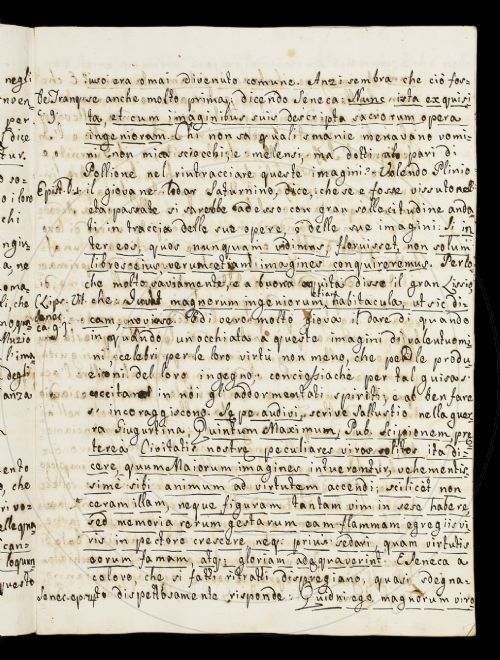 uso era omai divenuto comune. Anzi sembra che ciò fos-
se anche molto prima, dicendo Seneca: Nunc ista exquisi
ta, et cum imaginibus suis descripta sacrorum opera
ingeniorum. Chi non sa quali smanie menavano uomi
ni non mica sciocchi, e melensi, ma dotti al pari di
Pollione nel rintracciare queste imagini. Volendo Plinio
il giovane lodar Saturnino, dice, che se e' fosse vissuto nell
età passate si sarebbe adesso con gran sollecitudine anda
ti in traccia delle sue opere, e delle sue imagini: Si in
ter eos, quos nunquam vidimus, floruisset, non solum
libros eius verum etiam imagines conquireremus. Perlo
che molto saviamente, e a buona disse il gran Lissio
che: magnorum ingeniorum etiam habitacula, ut sic di
cam, novisse. Ed è vero molto giova il dare di quando
in quando un'occhiata a queste imagini di valentuomi
ni celebri per le loro virtù non meno, che per le produ
zioni del loro ingegno: conciossiache per tal guisa s'
eccitano in noi gli addormentati spiriti; e ad ben fare
s'incoraggiscono. Sepe audivi, scrive Sallustio nella guer
ra Giugurtina Quintum Maximum, Pub. Scipionem, pre
terea Civitatis nostre peculiares viros solitos ita di
cere, quum Maiorum imagines intuerentur, vehementis
sime sibi animum ad virtutem accendi; scilicet non
ceram illam, neque figuram tantam vim in sese habere,
sed memoria rerum gestarum eam flammam egregiis vi
ris in pectore crescere, neq: prius sedari, quam virtutis
eorum famam, atq: gloriam adaequaverint. E Seneca a
coloro, che si fatti ritratti dispregiano, quasi sdegna-
to dispettosamente risponde: Quidni ego magnorum viro
de Tranq
c. 9.
Epist.
Senec. ep.
negli
per
dice
chi
degli
anza
che
can-
questo